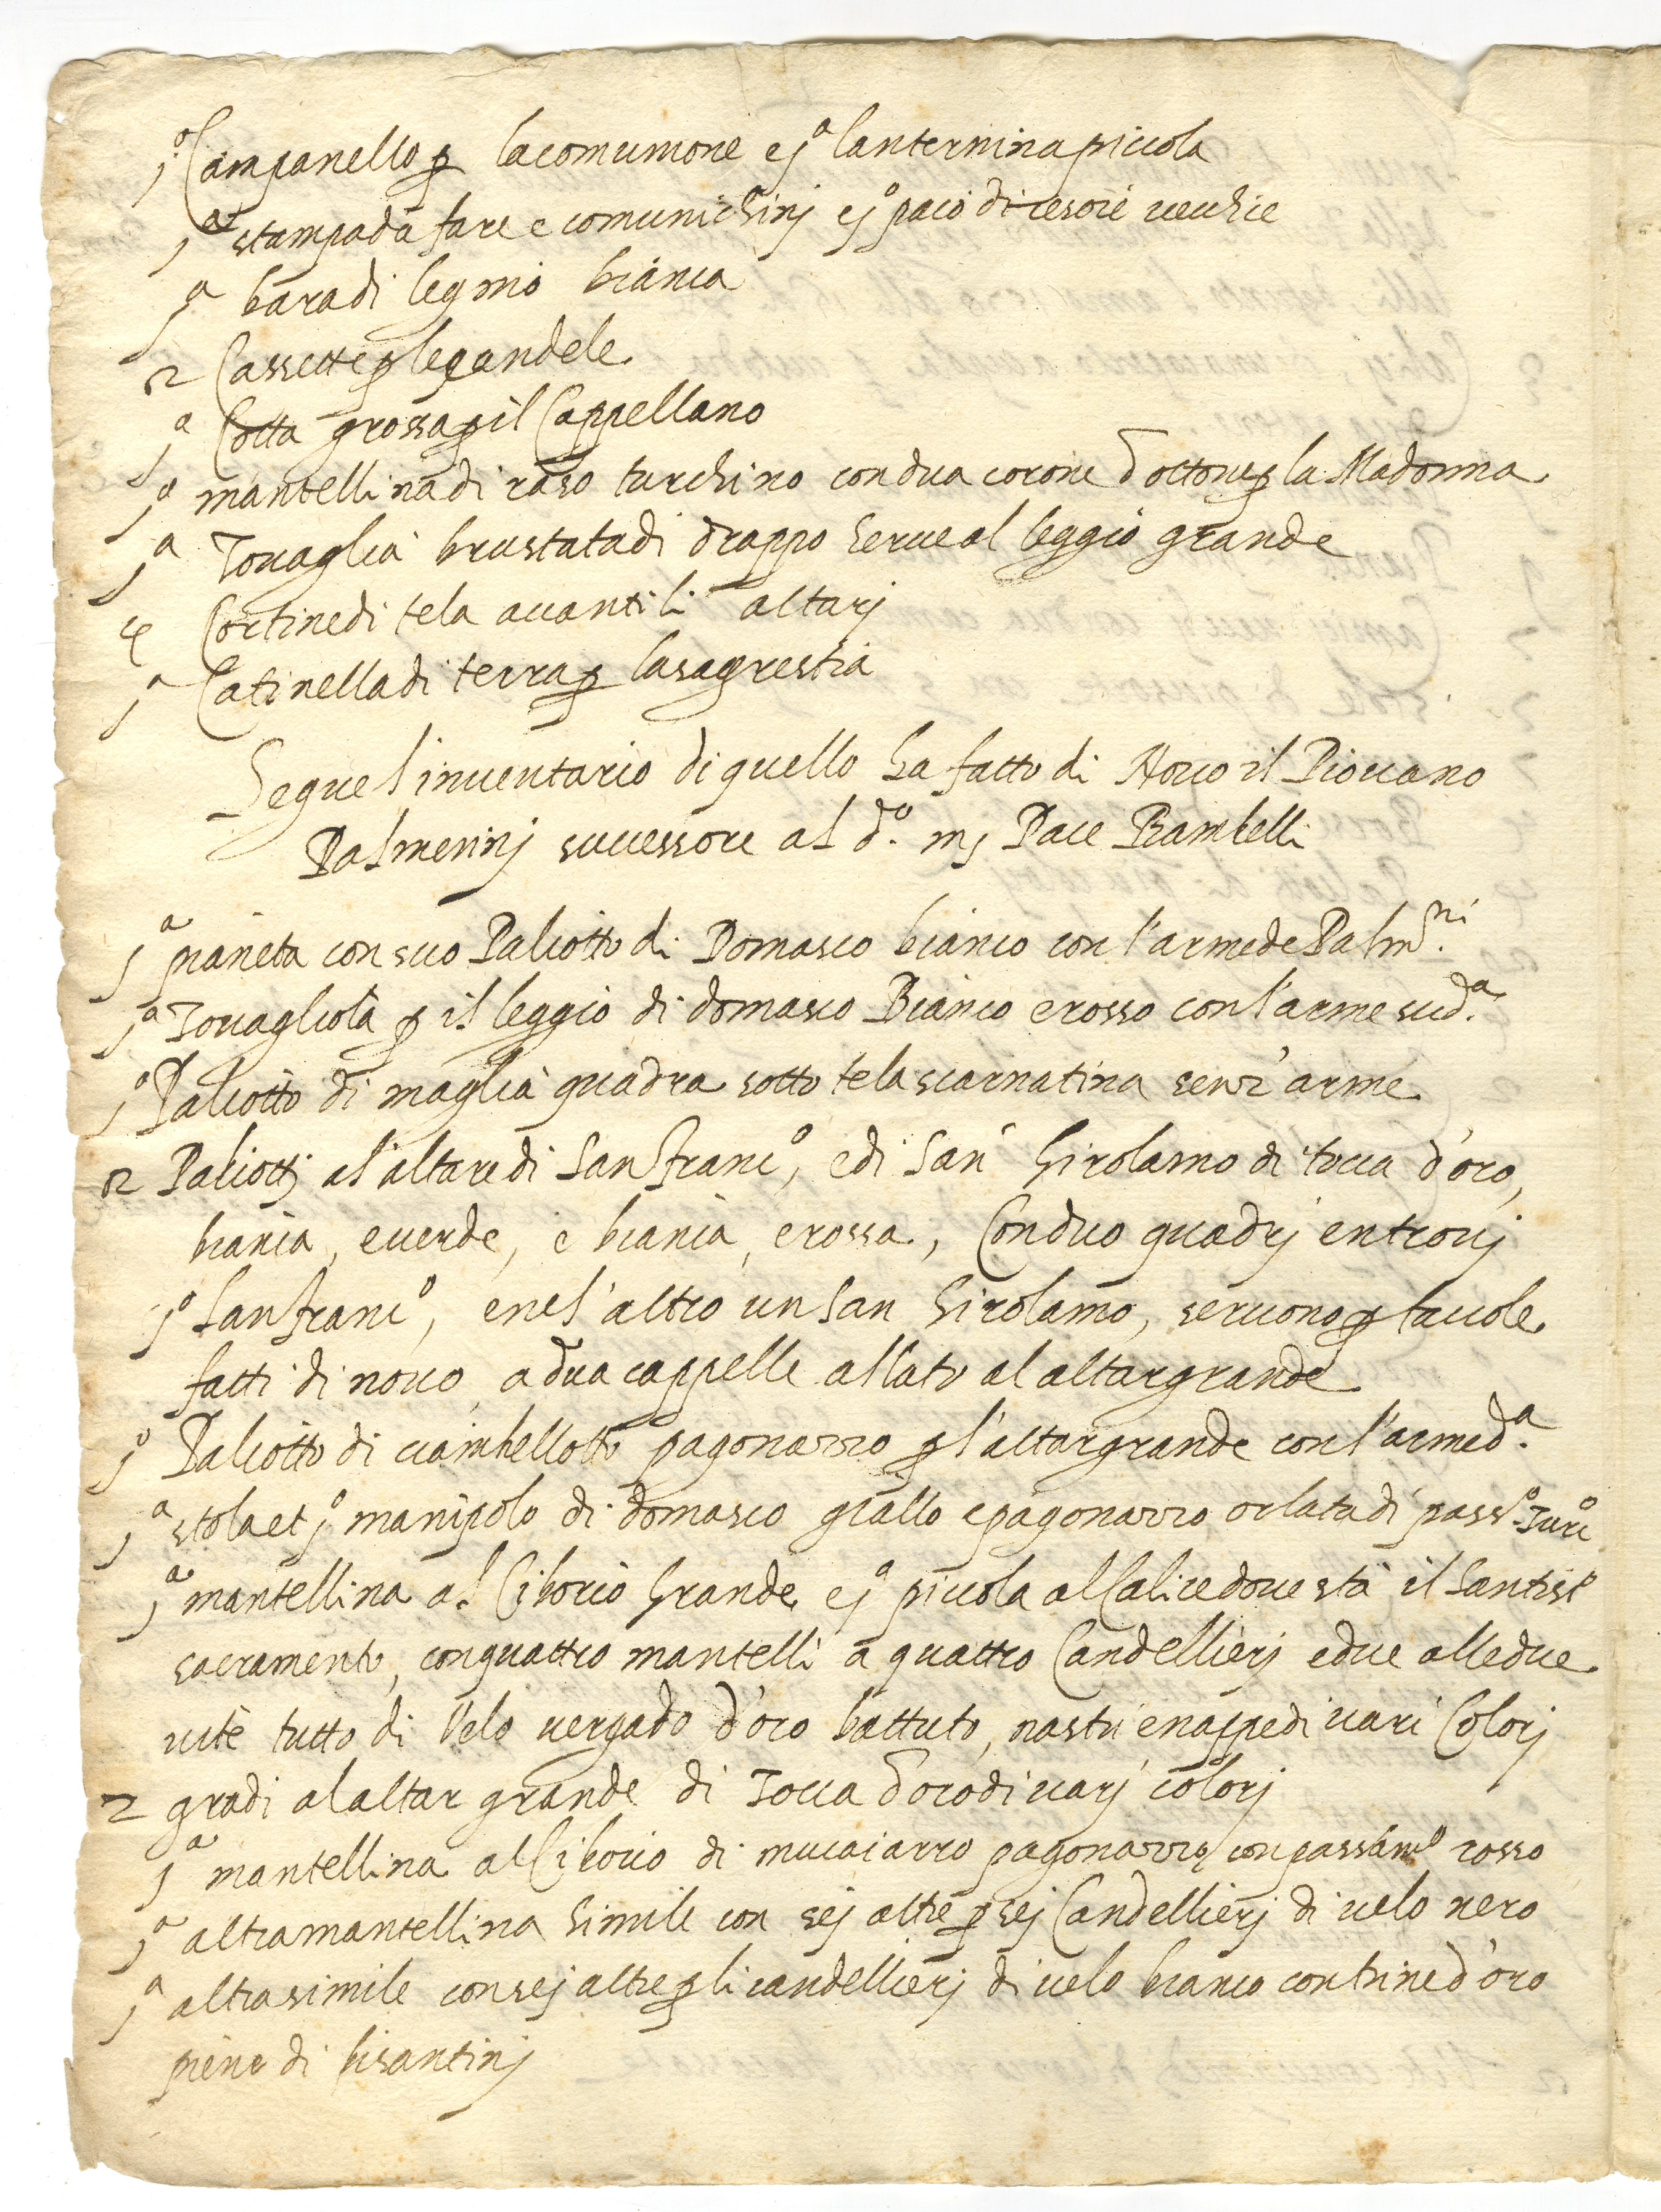 1° Campanello p la comunione e 1ª lanternina piccola
1ª stampa da fare e comunichinj e 1° paio di cesoie uechie
1ª bara di legnio biancа
2 Cassette p le candele
1ª Cotta grossa p il Cappellano
1ª mantellina di raso turchino con dua corone d'ottone p la Madonna
1ª Touaglia brustata di drappo serue al leggio grande
4 Cortine di tela auanti li altarj
1ª Catinella di terra p la sagrestia
Segue l'inuentario di quello ha fatto di Nouo il Piouano
Palmerinj successore al d.° mj Pace Rambelli
1ª pianeta con suo Paliotto di Domasco bianco con l'arme de Palm.ni
1ª Touagliola p il leggio di domasco Bianco e rosso con l'arme sud.ª
1° Paliotto di maglia quadra sotto tela scarnatina senz'arme
2 Paliottj al'altare di San Franc°, e di San Girolamo di tocca d'oro,
biancа, e uerde, e biancа, e rossa, Con duo quadrj entrouj
1° San Franc°, e nel'altro un San Girolamo, seruono p tauole
fatti di nouo a dua cappelle allato al altar grande
1° Paliotto di ciambellotto pagonazzo p l'altar grande con l'arme d.ª
1ª stola et 1° manipolo di domasco giallo e pagonazzo orlata di pass.°
1ª mantellina al Ciborio Grande e 1ª piccola al Calice doue sta il Santis°
sacramento, con quattro mantelli a quattro Candellierj e due alle due
uite tutto di Velo uergado d'oro battuto, nastri e nappe di uari Colorj
2 gradi al altar grande di Tocca d'oro di uarj colorj
1ª mantellina al Ciborio di mucaiarro pagonazzo con passam° rosso
1ª altra mantellina simile con sej altre p sej Candellierj di uelo nero
1ª altra simile con sej altre p li candellierj di uelo bianco con trine d'oro
piene di bisantinj